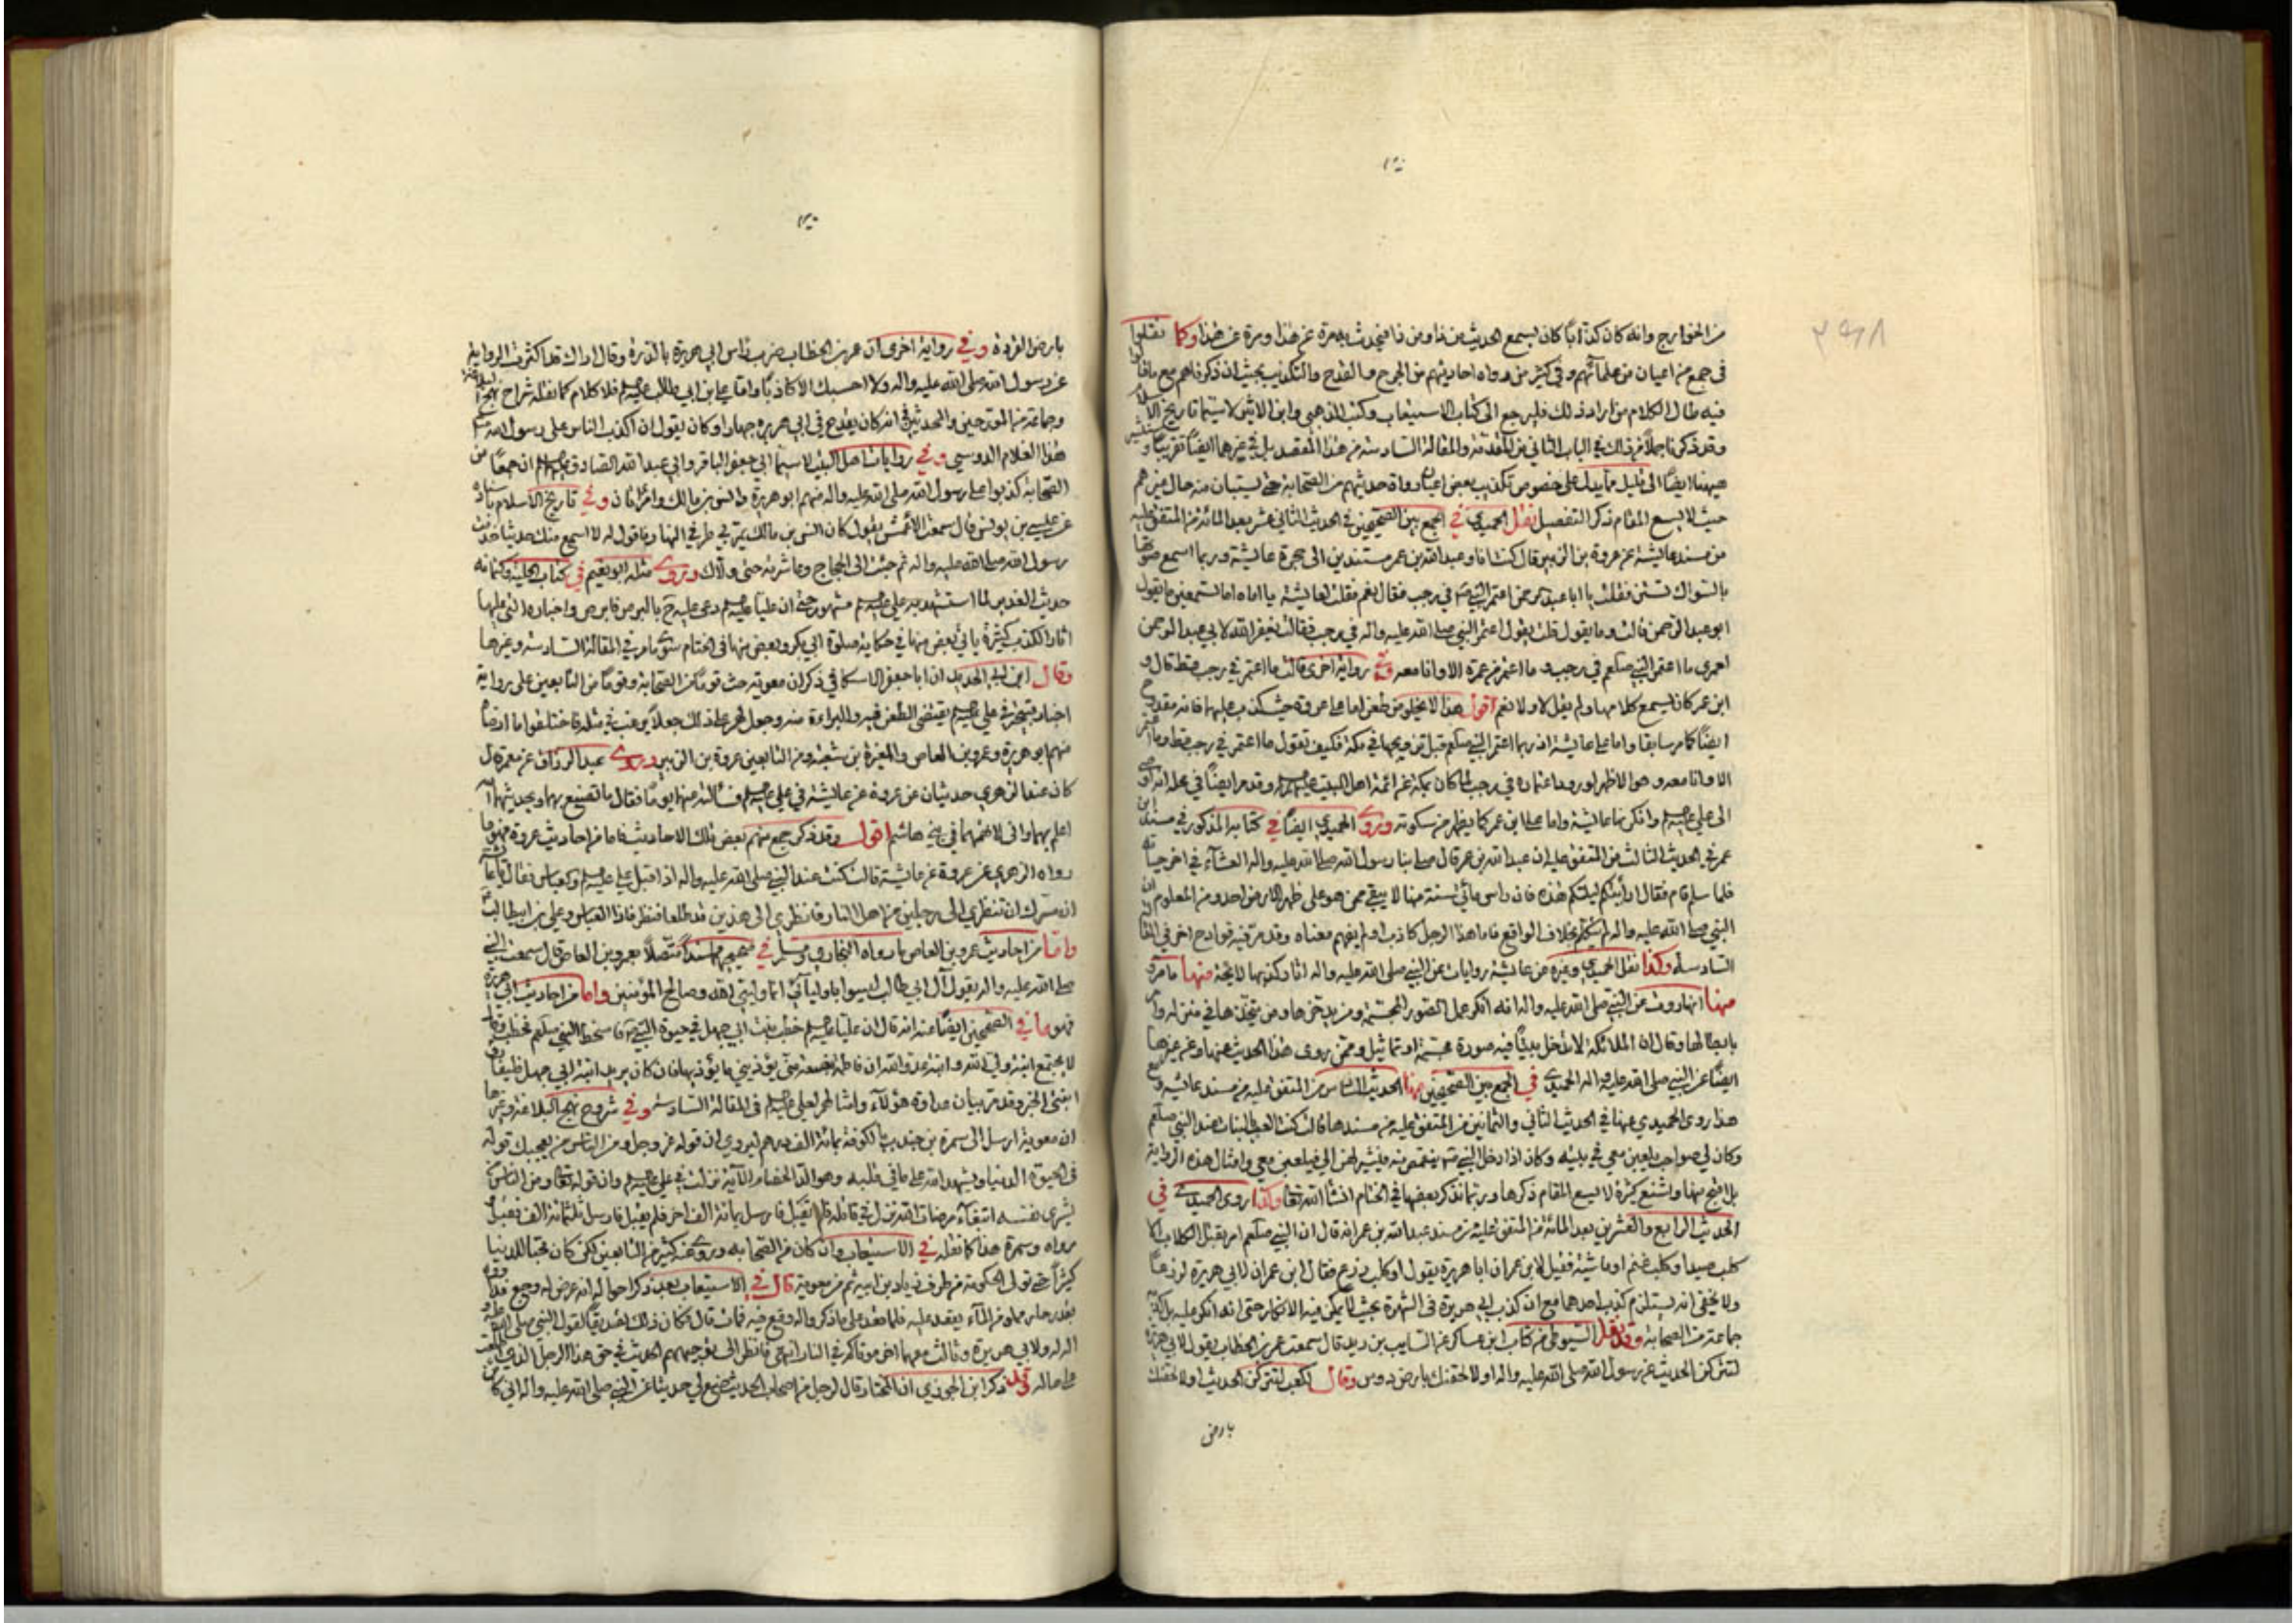 من الخوارج وانه كان كذابًا كان يسمع الحديث من ذا ومن ذا فيحدث به مرة عن هذا ومرة عن هذا وكما نقلوا
في جمع من اعيان من علمائهم وفي كثير من رواه احاديثهم من الجرح والقدح والتكذيب بحيث ان ذكرناهم مع ما قالوا
فيه طال الكلام من اراد ذلك فليرجع الى كتاب الاستيعاب وكتب الذهبي وابن الاثير لا سيما تاريخ الاسلام
وقد ذكرنا جملًا من ذلك في الباب الثاني من المقدمة والمقالة السادسة من هذا المقصد بل في غيرهما ايضًا تقريبًا و
هيهنا ايضًا الى قليل مما يدل على خصوص تكذيب بعض اعيان رواة حديثهم من الصحابة حتى يستبان منه حال من هم
حيث لا يسع المقام ذكر التفصيل نقل الحميدي في الجمع بين الصحيحين في الحديث الثاني عشر بعد المائة من المتفق عليه
من مسند عايشة عن عروة بن الزبير قال كنت انا وعبد الله بن عمر مستندين الى حجرة عايشة وربما اسمع صوتها
بالسواك تستن فقلت يا ابا عبد الرحمن اعتمر النبي في رجب فقال نعم فقلت لعايشة يا اماه اما تسمعين ما يقول
ابو عبد الرحمن قالت وما يقول قلت يقول اعتمر النبي صلى الله عليه واله في رجب فقالت يغفر الله لابي عبد الرحمن
لعمري ما اعتمر النبي صلعم في رجب وما اعتمر من عمرة الا وانا معه وفي رواية اخرى قالت ما اعتمر في رجب قط قال و
ابن عمر كان يسمع كلامها ولم يقل لا ولا نعم اقول هذا لا يخلو من طعن اما على عروة حيث كذب عليهما فانه مقدوح
ايضًا كما مر سابقا واما على عايشة اذ ربما اعتمر النبي صلعم قبل تزويجها في مكة فكيف تقول ما اعتمر في رجب قط وما اعتمر
الا وانا معه وهو الاظهر لورود اعتماره في رجب لما كان بمكة عن ائمة اهل البيت وقد مر ايضًا في محله انه
الى علي وانكرتها عائشة واما على ابن عمر كما يظهر من سكوته وروى الحميدي ايضًا في كتابه المذكور في مسند ابن
عمر في الحديث الثالث من المتفق عليه ان عبد الله بن عمر قال صلى بنا رسول الله صلى الله عليه واله العشاء في اخر حياته
فلما سلم قام فقال ارأيتكم ليلتكم هذه فان راس مائة سنة منها لا يبقى ممن هو على ظهر الارض احد ومن المعلوم ان
النبي صلى الله عليه واله لم يتكلم بخلاف الواقع فاما هذا الرجل كاذب او لم يفهم معناه وقد مر فيه قوادح اخر في المقالة
السادسة وكذا نقل الحميدي وغيره عن عايشة روايات عن النبي صلى الله عليه واله اثار كذبها لائحة منها ما مر و
منها انها روت عن النبي صلى الله عليه واله انه انكر عمل الصور المجسمة
بابطالها وقال ان الملائكة لا تدخل بيتًا فيه صورة مجسمة او تماثيل وممن روى هذا الحديث عنها وعن غيرها
ايضًا عن النبي صلى الله عليه واله الحميدي في الجمع بين الصحيحين منها الحديث السادس من المتفق عليه من مسند عائشة ومع
هذا روى الحميدي عنها في الحديث الثاني والثمانين من المتفق عليه من مسندها قالت كنت العب بالبنات عند النبي صلعم
وكان لي صواحب يلعبن معي في بيته وكان اذا دخل النبي ينقمعن منه فيشير لهن الي فيلعبن معي وامثال هذه الرواية
بل اقبح منها واشنع كثيرة لا يسع المقام ذكرها وربما نذكر بعضها في الختام انشا الله تعا وكذا روى الحميدي في
الحديث الرابع والعشرين بعد المائة من المتفق عليه من مسند عبد الله بن عمر انه قال ان النبي صلعم امر بقتل الكلاب الا
كلب صيد او كلب غنم او ماشية فقيل لابن عمر ان ابا هريرة يقول او كلب زرع فقال ابن عمر ان لابي هريرة لزرعًا
ولا يخفى انه يستلزم كذب احدهما مع ان كذب ابي هريرة في الشهرة بحيث لا يمكن فيه الانكار حتى انه انكر عليه بل اكذبه
جماعة من الصحابة وقد نقل السيوطي من كتاب ابن عساكر عن السايب بن يزيد قال سمعت عمر بن الخطاب يقول لابي هريرة
لتتركن الحديث عن رسول الله صلى الله عليه واله او لالحقنك بارض دوس وقال لكعب لتتركن الحديث او لالحقنك
بارض
بارض القردة وفي رواية اخرى ان عمر بن الخطاب ضرب راس ابي هريرة بالدرة وقال اراك قد اكثرت الرواية
عن رسول الله صلى الله عليه واله ولا احسبك الا كاذبًا واما علي بن ابي طالب فلا كلام كما نقله شراح نهج البلاغة
وجماعة من المورخين والمحدثين في انه كان يقدح في ابي هريرة جهارا وكان يقول ان اكذب الناس على رسول الله
هذا الغلام الدوسي وفي روايات اهل البيت لا سيما ابي جعفر الباقر وابي عبد الله الصادق ان جمعًا من
الصحابة كذبوا على رسول الله صلى الله عليه واله منهم ابو هريرة وانس بن مالك وامراتان وفي تاريخ الاسلام باسناده
عن عيسى بن يونس قال سمعت الاعمش يقول كان انس بن مالك يمر بي طرفي النهار فاقول له لا اسمع منك حديثا خدمت
رسول الله صلى الله عليه واله ثم جئت الى الحجاج وعاشرته حتى ولاك وروى مثله ابو نعيم في كتاب الحلية وكتمانه
حديث الغدير لما استشهد به علي مشهور حتى ان عليًا دعى عليه بالبرص فابرص واخباره التي عليها
اثار الكذب كثيرة يأتي بعض منها في حكاية صلوة ابي بكر وبعض منها في الختام سوى ما مر في المقالة السادسة وغيرها
وقال ابن ابي الحديد ان ابا جعفر الاسكافي ذكر ان معوية حث قومًا من الصحابة وقومًا من التابعين على رواية
اخبار قبيحة في علي يقتضى الطعن فيه والبراءة منه وجعل لهم على ذلك جعلًا يرغب في مثله فاختلقوا ما ارضاه
منهم ابو هريرة وعمرو بن العاص والمغيرة بن شعبة ومن التابعين عروة بن الزبير وروى عبد الرزاق عن معمر قال
كان عند الزهري حديثان عن عروة عن عايشة في علي فسألته عنهما يومًا فقال ما تصنع بهما وبحديثهما الله
اعلم بهما واني لاتهمهما في بني هاشم اقول وقد ذكر جمع منهم بعض تلك الاحاديث فاما من احاديث عروة فهو ما
رواه الزهري عن عروة عن عايشة قالت كنت عند النبي صلى الله عليه واله اذ اقبل علي والعباس فقال يا عايشة
ان سرك ان تنظري الى رجلين من اهل النار فانظري الى هذين قد طلعا فنظر فاذا العباس وعلي بن ابيطالب
واما من احاديث عمرو بن العاص ما رواه البخاري ومسلم في صحيحيهما مسندًا متصلًا بعمرو بن العاص قال سمعت النبي
صلى الله عليه واله يقول ال ابي طالب ليسوا باوليائي انما وليي الله وصالح المؤمنين واما من احاديث ابي هريرة
فهو ما في الصحيحين ايضًا عنه انه قال ان عليًا خطب بنت ابي جهل في حيوة النبي فاسخط النبي صلعم فخطب وقال
لا يجتمع ابنة ولي الله وابنة عدو الله ان فاطمة بضعة مني يؤذيني ما يؤذيها فان كان يريد ابنة ابي جهل فليفارق
ابنتي الخبر وقد مر بيان عداوة هؤلاء وامثالهم لعلي في المقالة السادسة وفي شروح نهج البلاغة وغيرها
ان معوية ارسل الى سمرة بن جندب بالكوفة بمائة الف درهم ليروي ان قوله عز وجل ومن الناس من يعجبك قوله
في الحيوة الدنيا ويشهد الله على ما في قلبه وهو الد الخصام الاية نزلت في علي وان قوله تعالى ومن الناس من
يشري نفسه ابتغاء مرضات الله نزل في قاتله فلم يقبل فارسل بمائة الف اخر فلم يقبل فارسل ثلثمائة الف فقبل و
رواه وسمرة هذا كما نقله في الاستيعاب وان كان من الصحابة وروى عنه كثير من التابعين لكن كان محبًا للدنيا
كثيرًا حتى تولى الحكومة من طرف زياد بن ابيه ثم من معوية قال في الاستيعاب بعد ذكر احواله انه عرض له وجع
بقدر حار مملو من الماء يقعد عليه فلما قعد على ما ذكر واله وقع فيه فمات قال فكان ذلك تصديقًا لقول النبي صلى الله عليه و
اله له ولابي هريرة وثالث معهما اخركم موتا في النار انتهى فانظر الى نقلهم الحديث في حق هذا الرجل الذي
حاله وقد ذكر ابن الجوزي ان المختار قال لرجل من اصحاب الحديث ضع لي حديثا عن النبي صلى الله عليه واله اني كائن